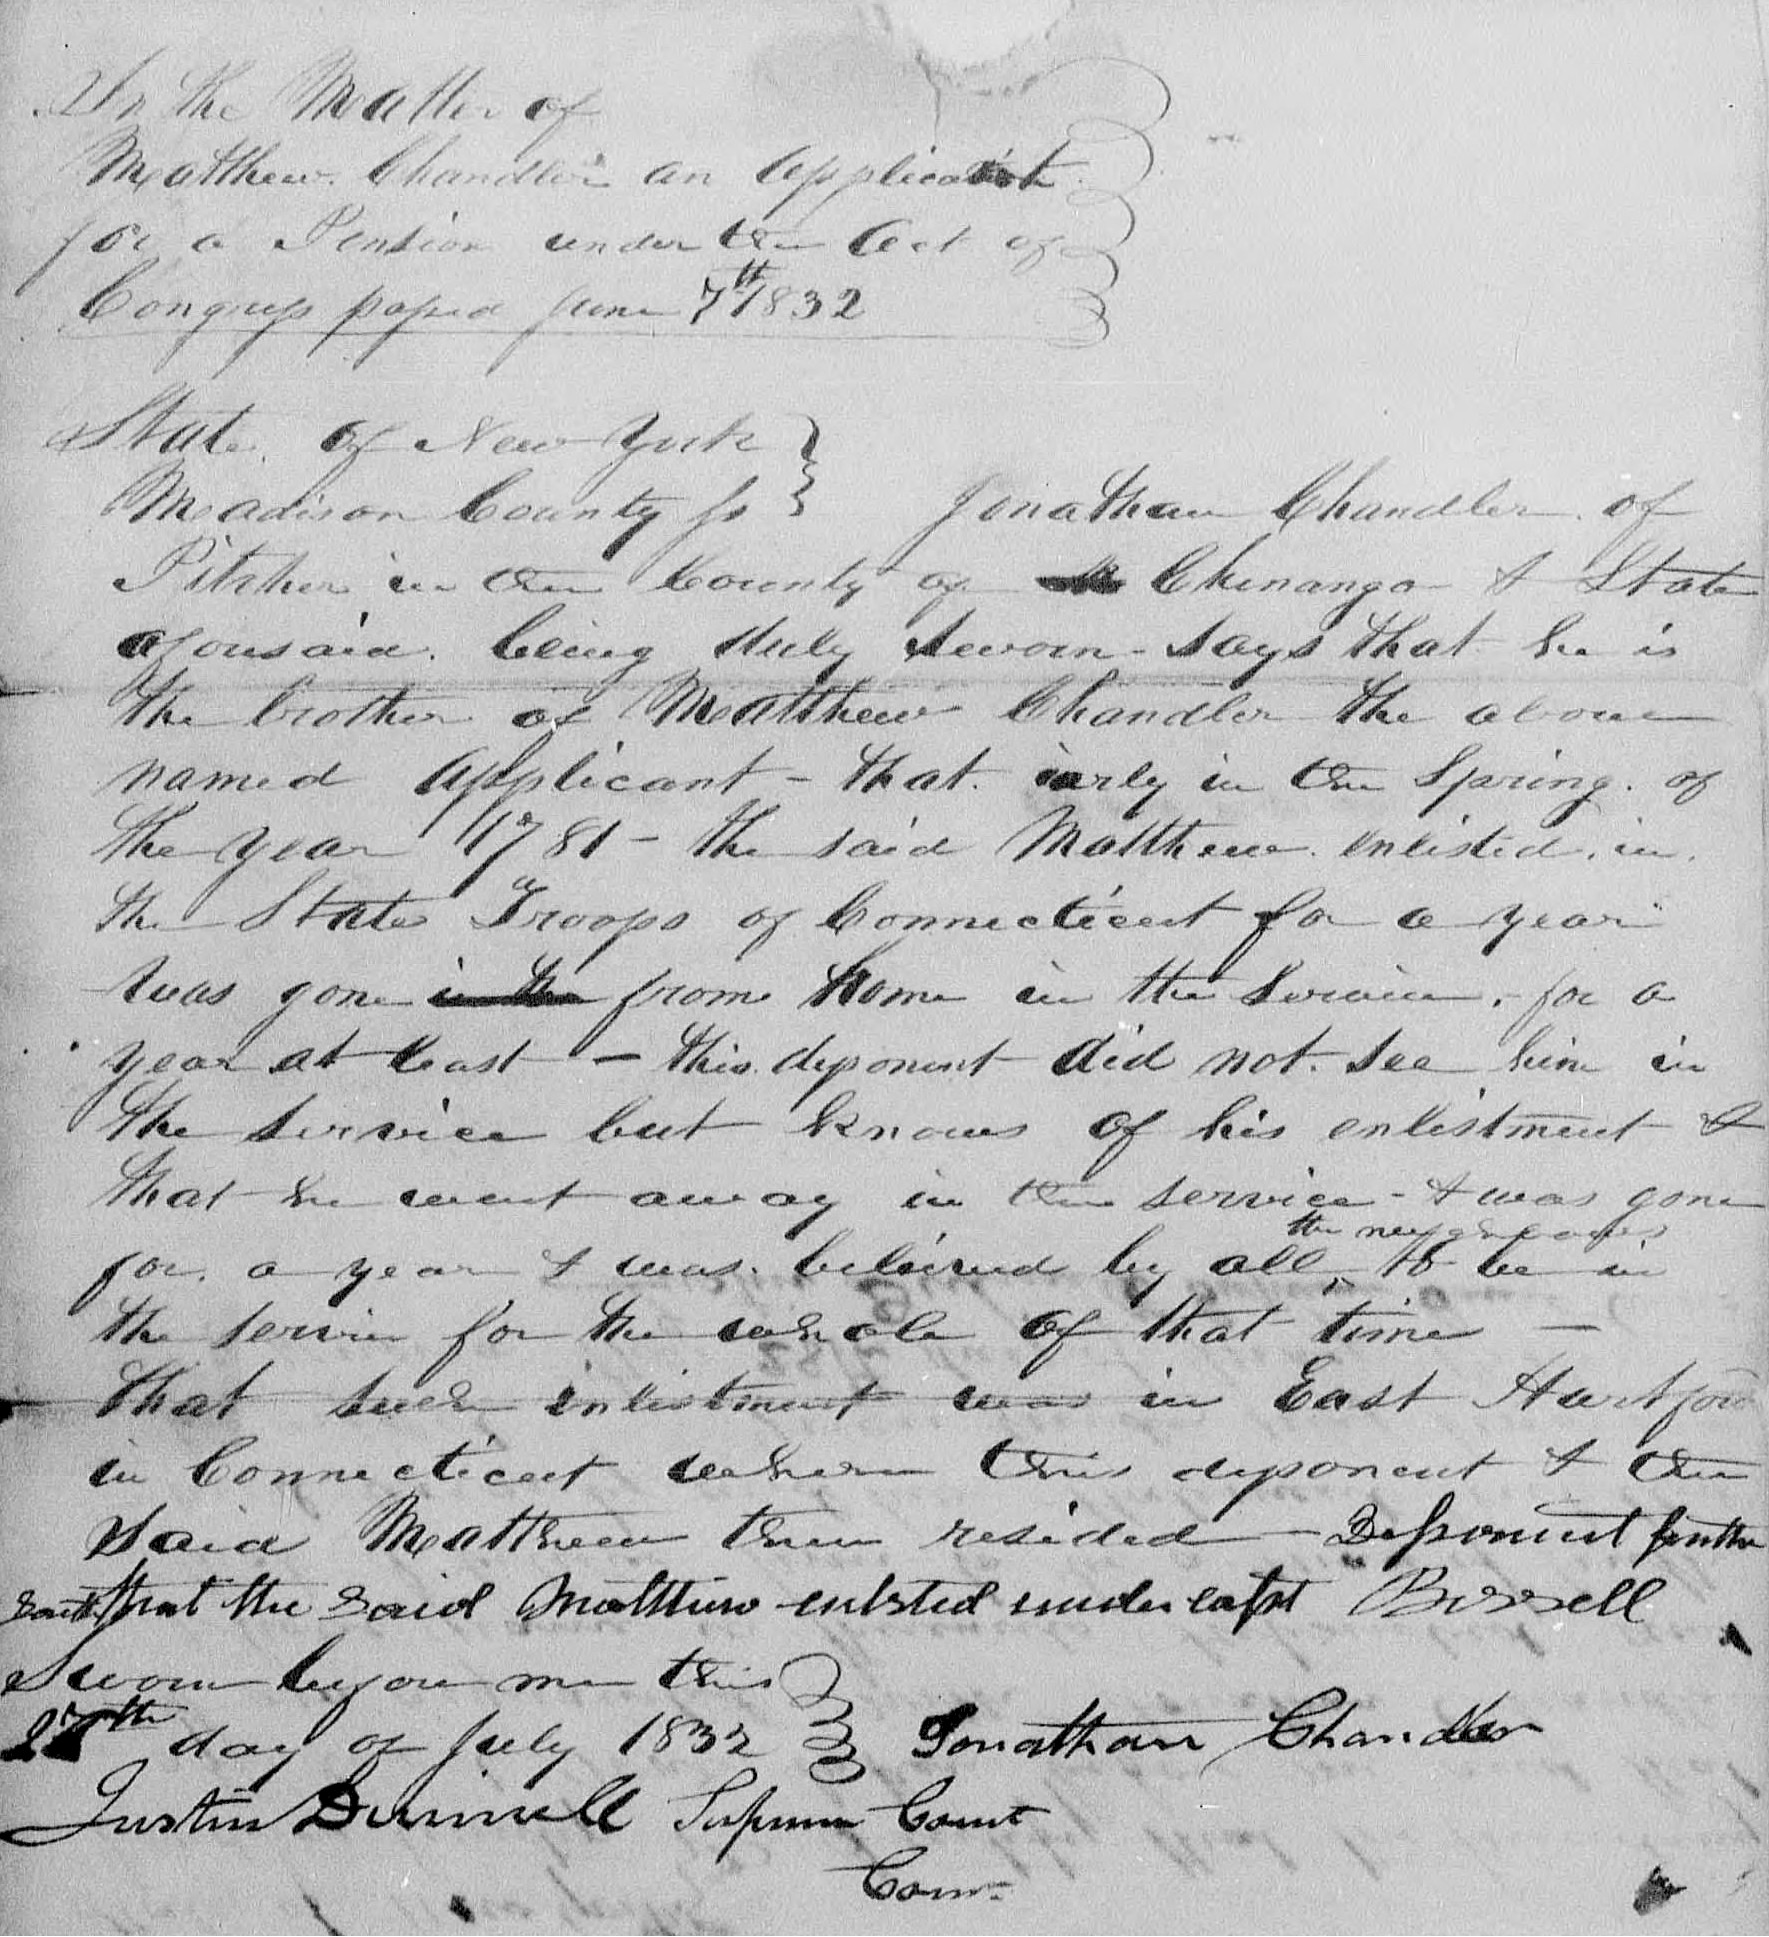 In the Matter of
Matthew Chandler an Applicant
for a Pension under the Act of
Congress passed June 7th 1832
State of New York
Madison County ss Jonathan Chandler of
Pitcher in the County of Chenango & State
aforesaid being duly sworn - says that he is
the brother of Matthew Chandler the above
named Applicant - that early in the Spring of
the year 1781 - the said Matthew enlisted in
the State Troops of Connecticut for a year
was gone in the from home in the service, for a
year at least - this deponent did not see him in
the service but knows of his enlistment &
that he went away in the service - & was gone
the neighbours
for a year & was believed by all to be in
the servic for the whole of that time -
that such enlistment was in East Hartford
in Connecticut where this deponent & the
said Matthew then resided - Deponent further
saith that the said Matthew enlisted under capt Bissell
Sworn before me this
27th day of July 1832 Jonathan Chandler
Justin Dwinnell Supreme Court
Com.